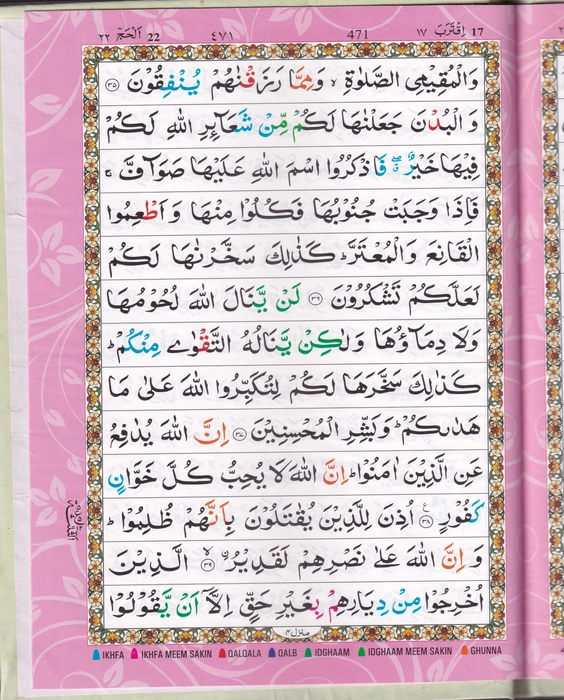 ٢٢ اَلْحَجّ 22 ٤٧١ 471 ١٧ اِقْتَرَبَ 17
وَالْمُقِيْمِى الصَّلٰوةِ ۙ وَمِمَّا رَزَقْنٰهُمْ يُنْفِقُوْنَ ۝۳۵
وَ الْبُدْنَ جَعَلْنٰهَا لَكُمْ مِّنْ شَعَآئِرِ اللّٰهِ لَكُمْ
فِيْهَا خَيْرٌ ۖ فَاذْكُرُوا اسْمَ اللّٰهِ عَلَيْهَا صَوَآفَّ ۚ
فَاِذَا وَجَبَتْ جُنُوْبُهَا فَكُلُوْا مِنْهَا وَ اَطْعِمُوا
الْقَانِعَ وَالْمُعْتَرَّ ؕ كَذٰلِكَ سَخَّرْنٰهَا لَكُمْ
لَعَلَّكُمْ تَشْكُرُوْنَ ۝۳۶ لَنْ يَّنَالَ اللّٰهَ لُحُوْمُهَا
وَلَا دِمَآؤُهَا وَلٰكِنْ يَّنَالُهُ التَّقْوٰى مِنْكُمْ ؕ
كَذٰلِكَ سَخَّرَهَا لَكُمْ لِتُكَبِّرُوا اللّٰهَ عَلٰى مَا
هَدٰىكُمْ ؕ وَبَشِّرِ الْمُحْسِنِيْنَ ۝۳۷ اِنَّ اللّٰهَ يُدٰفِعُ
عَنِ الَّذِيْنَ اٰمَنُوْا ؕ اِنَّ اللّٰهَ لَا يُحِبُّ كُلَّ خَوَّانٍ
كَفُوْرٍ ۝۳۸ اُذِنَ لِلَّذِيْنَ يُقٰتَلُوْنَ بِاَنَّهُمْ ظُلِمُوْا ؕ
وَ اِنَّ اللّٰهَ عَلٰى نَصْرِهِمْ لَقَدِيْرُ ۝۳۹ الَّذِيْنَ
اُخْرِجُوْا مِنْ دِيَارِهِمْ بِغَيْرِ حَقٍّ اِلَّاۤ اَنْ يَّقُوْلُوْا
منزل ۴
IKHFA IKHFA MEEM SAKIN QALQALA QALB IDGHAAM IDGHAAM MEEM SAKIN GHUNNA